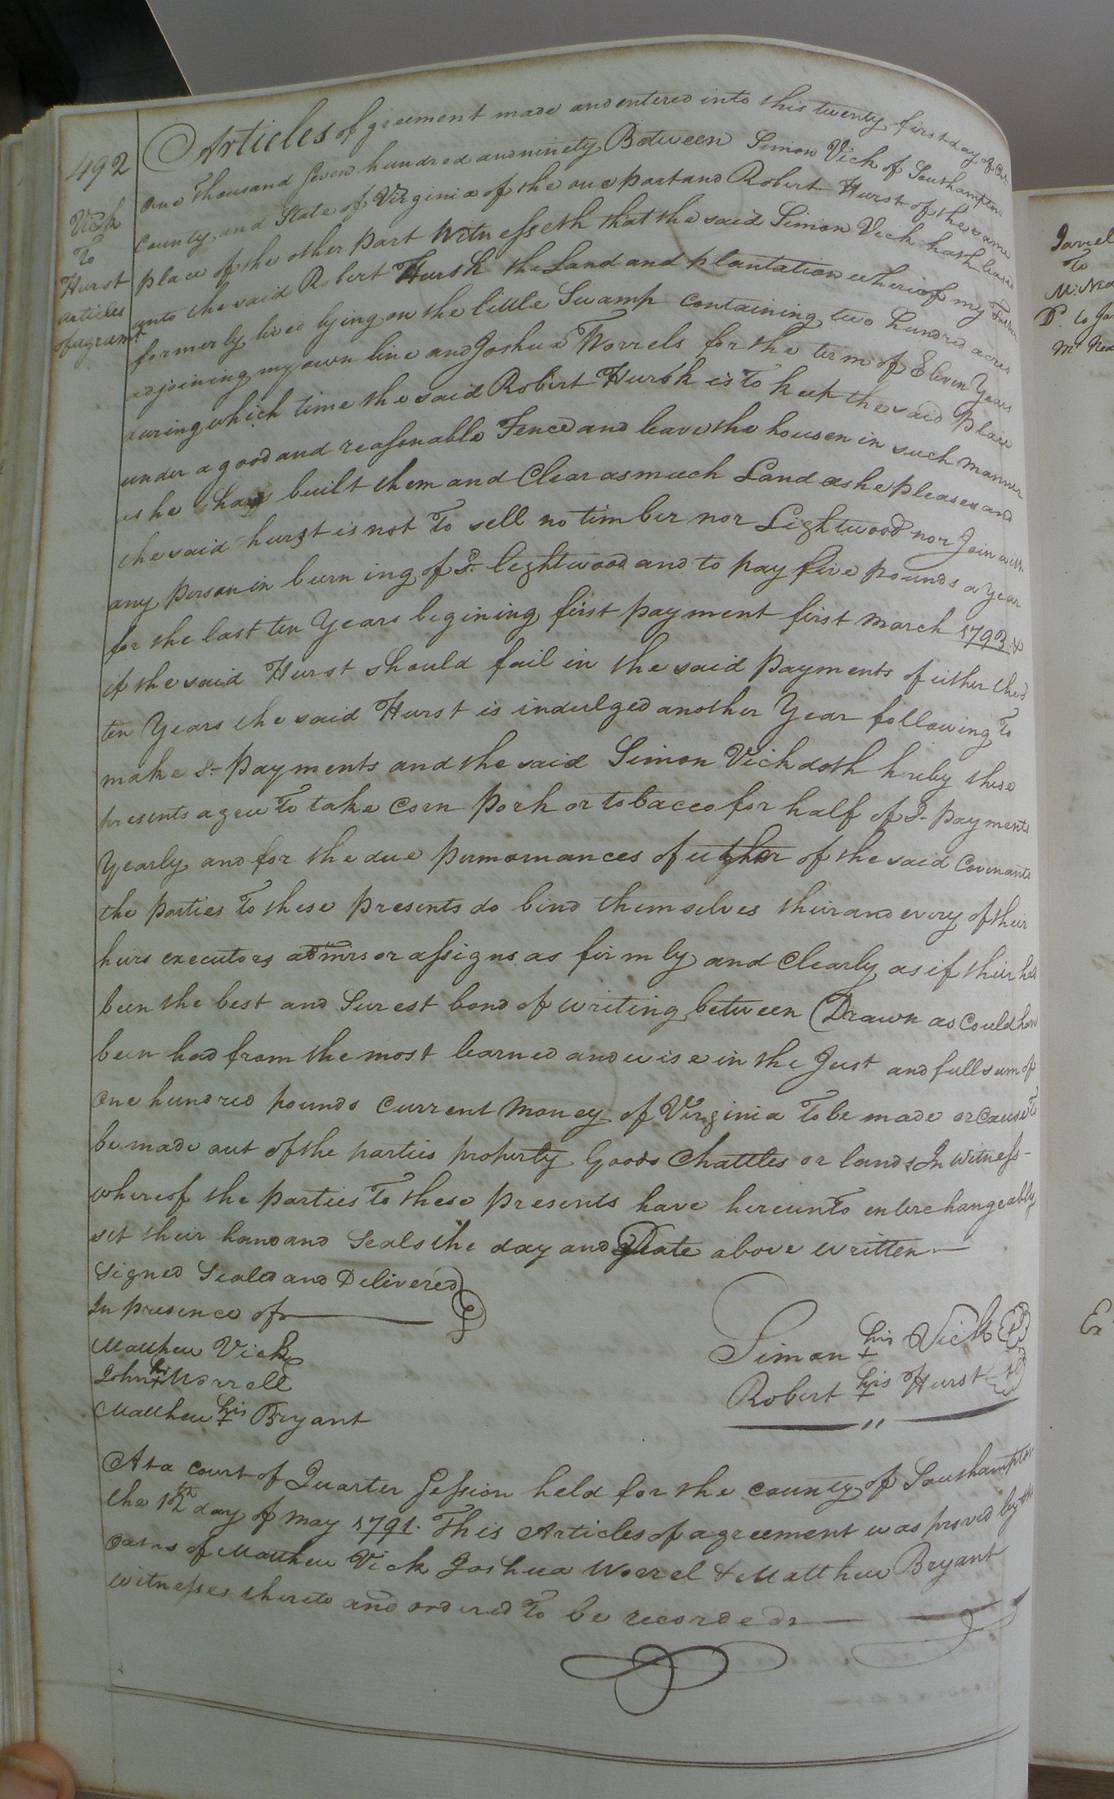 492
Vick
To
Hurst
articles
of agramt
Articles of greement made and entered into this twenty first day of Oct
one Thousand Seven hundred and ninety Between Simon Vick of Southampton
County and State of Virginia of the one part and Robert Hurst of the same
place of the other part Witnesseth that the said Simon Vick hath leased
unto the said Robert Hursh the Land and plantation whereof my Father
formerly lived lying on the little Swamp containing two hundred acres
adjoining my own line and Joshua Worrels for the term of Eleven Years
during which time the said Robert Hursh is To keep the said place
under a good and reasonable Fence and leave the housen in such manner
as he has built them and Clear as much Land as he pleases and
the said hurst is not To sell no timber nor Lightwood nor Join with
any person in burning of sd. lightwood and to pay five pounds a year
for the last ten Years begining first payment first march 1793 &
if the said Hurst should fail in the said payments of either the sd
ten Years the said Hurst is indulged another Year following To
make sd. payments and the said Simon Vick doth hereby these
presents agree To take corn pork or tobacco for half of sd. payments
Yearly and for the due permornances of either of the said Covenants
the parties To these presents do bind themselves their and every of their
heirs executors admrs or assigns as firmly and Clearly as if their had
been the best and Surest bond of writing between Drawn as Could have
been had from the most learned and wise in the Just and full sum of
one hundred pounds current money of Virginia To be made or cause To
be made out of the parties property Goods Chattles or lands In witness
whereof the parties To these presents have hereunto enterchangeably
set their hand and Seals the day and Date above written
Signed Sealed and Delivered
In presence of
Matthew Vick
John his + Worrell
Matthew his + Bryant
Simon his + Vick
Robert his + Hurst
At a court of Quarter Session held for the county of Southampton
the 12th day of may 1791. This Articles of agreement was proved by the
oaths of Matthew Vick Joshua Worrel & Matthew Bryant
witnesses thereto and ordered To be recorded
To